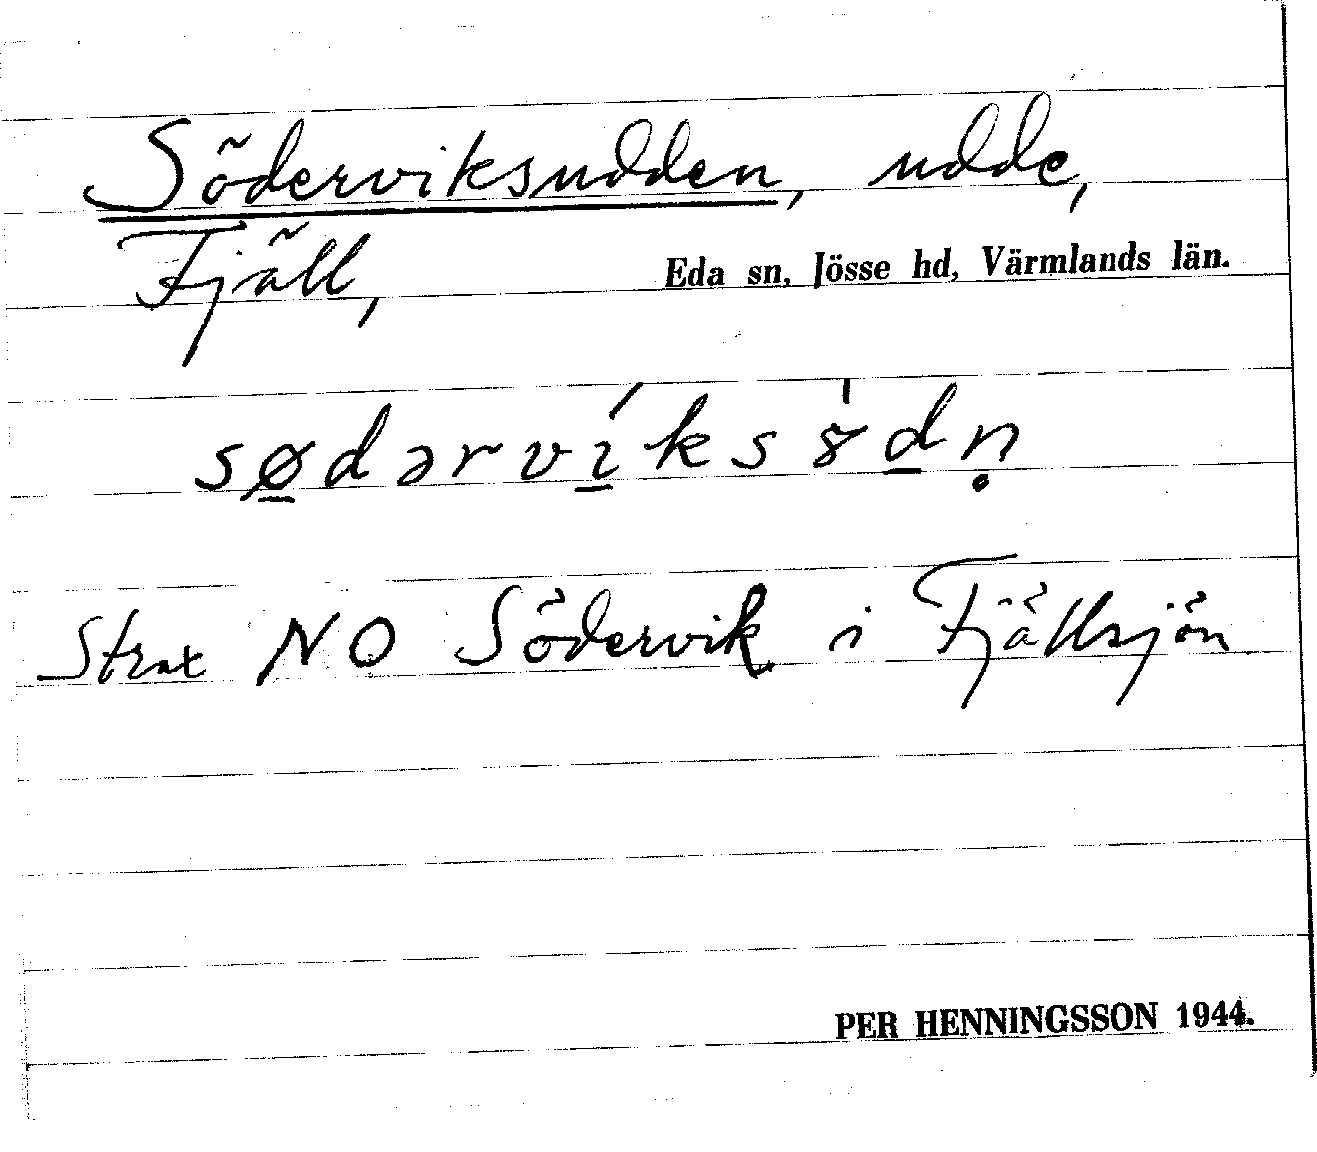 Söderviksudden, udde,
Fjäll, Eda sn, Jösse hd, Värmlands län.
sø̱dərví̱ks8̍ḏn̥
Strax NO Södervik i Fjällsjön
PER HENNINGSSON 1944.